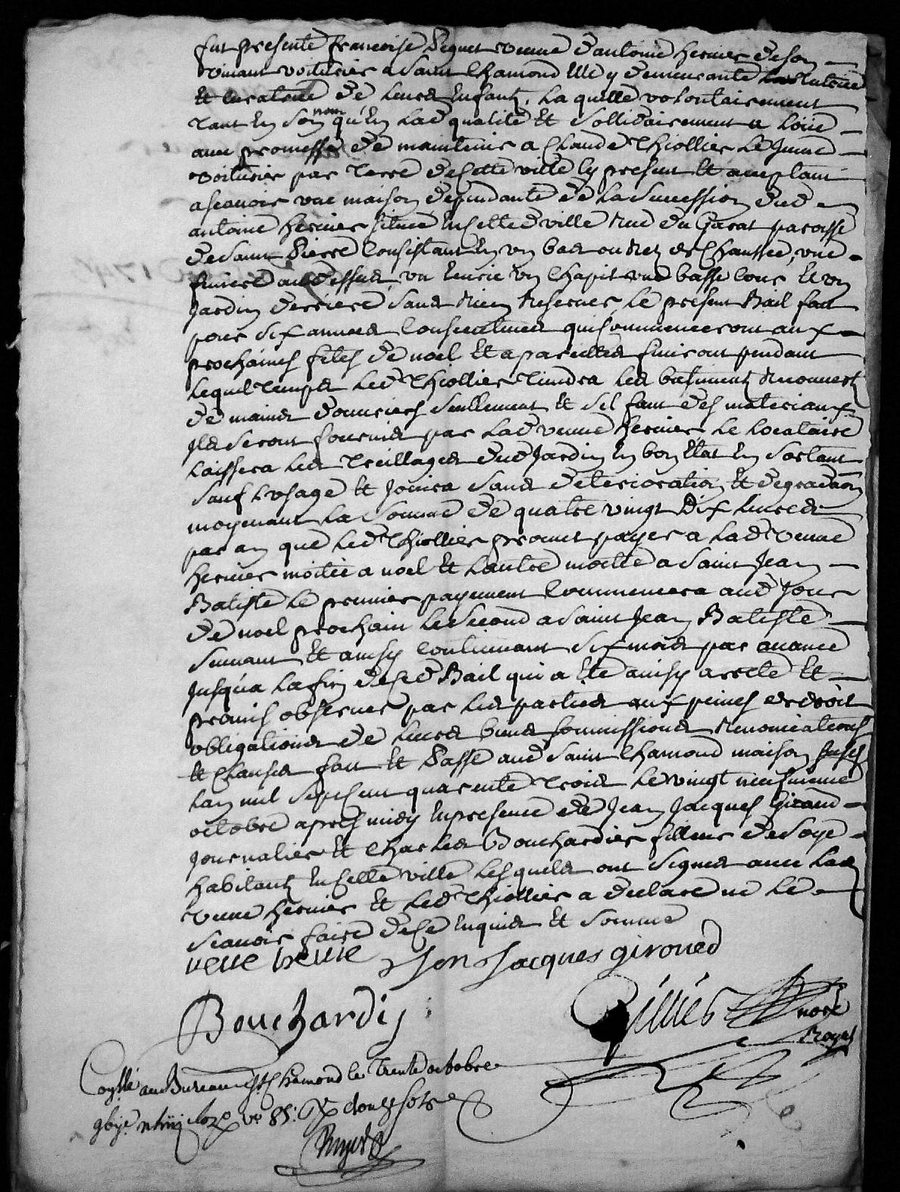 fut presente francoise Piquet veuve d'antoine hervier de son
vivant voiturier a Saint Chamond Y demeurante tutrice
Et Curatrice De leurs Enfants, La quelle volontairement
Tant En Son nom qu'En Lad qualité Et Sollidairement a Loüé
avec promesse De maintenir a Claude Thiollier Le Jeune
voiturier par Terre de Cette ville Cy present Et acceptant
a scavoir une maison dependante De La Succession dud
antoine hervier situee En Cette ville Rue du Garat paroisse
de Saint Pierre Consistant En un bas ou Rez de Chaussée, une
au dessus un un Chapit une basse Cour Et un
Jardin derriere Sans Rien Reserver Le present Bail fait
pour Six années Consecutives qui Commenceront aux
prochaines fetes De noel Et a pareilles finiront pendant
Lequel Temps Led Thiollier Tiendra Les batiments Recouverts
De mains d'ouvriers Seullement Et Sil faut des materiaux
Ils Seront fournis par Lad veuve hervier Le Locataire
Laissera Les Treillages dud Jardin En bon Etat En Sortant
Sauf L'usage Et Jouira Sans deterioration Et degradation
moyenant La Somme De quatre vingt Dix Livres
par an que Led Thiollier promet payer a Lad veuve
hervier moitié a noel Et L'autre moitié a Saint Jean
Batiste Le premier payement Commencera aud Jour
De noel prochain Le Second a Saint Jean Batiste
Suivant Et ainsy Continuant Six mois par avance
Jusqu'a La fin Desd Bail qui a Eté ainsy arreté Et
promis observer par Les parties aux peines de droit
obligations De Leurs biens Soumissions Renonciations
Et Clauses fait Et Passé aud Saint Chamond maison
Lan mil Sept Cent quarente Trois Le vingt neufvieme
octobre apres midy En presence De Jean Jacques Giraud
Journalier Et Charles Bouchardier filleur de Soye
habitants En Cette ville Lesquels ont Signé avec Lad
veuve hervier Et Led Thiollier a declaré ne Le
Scavoir faire de Ce Enquis Et Sommé
veuve Jean Jacques giroued
Bouchardi
not
Royal
au Bureau de St Chamond le Trente octobre
douze sols